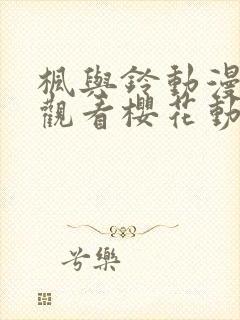 楓與鈴動漫
觀看櫻花動
兮樂